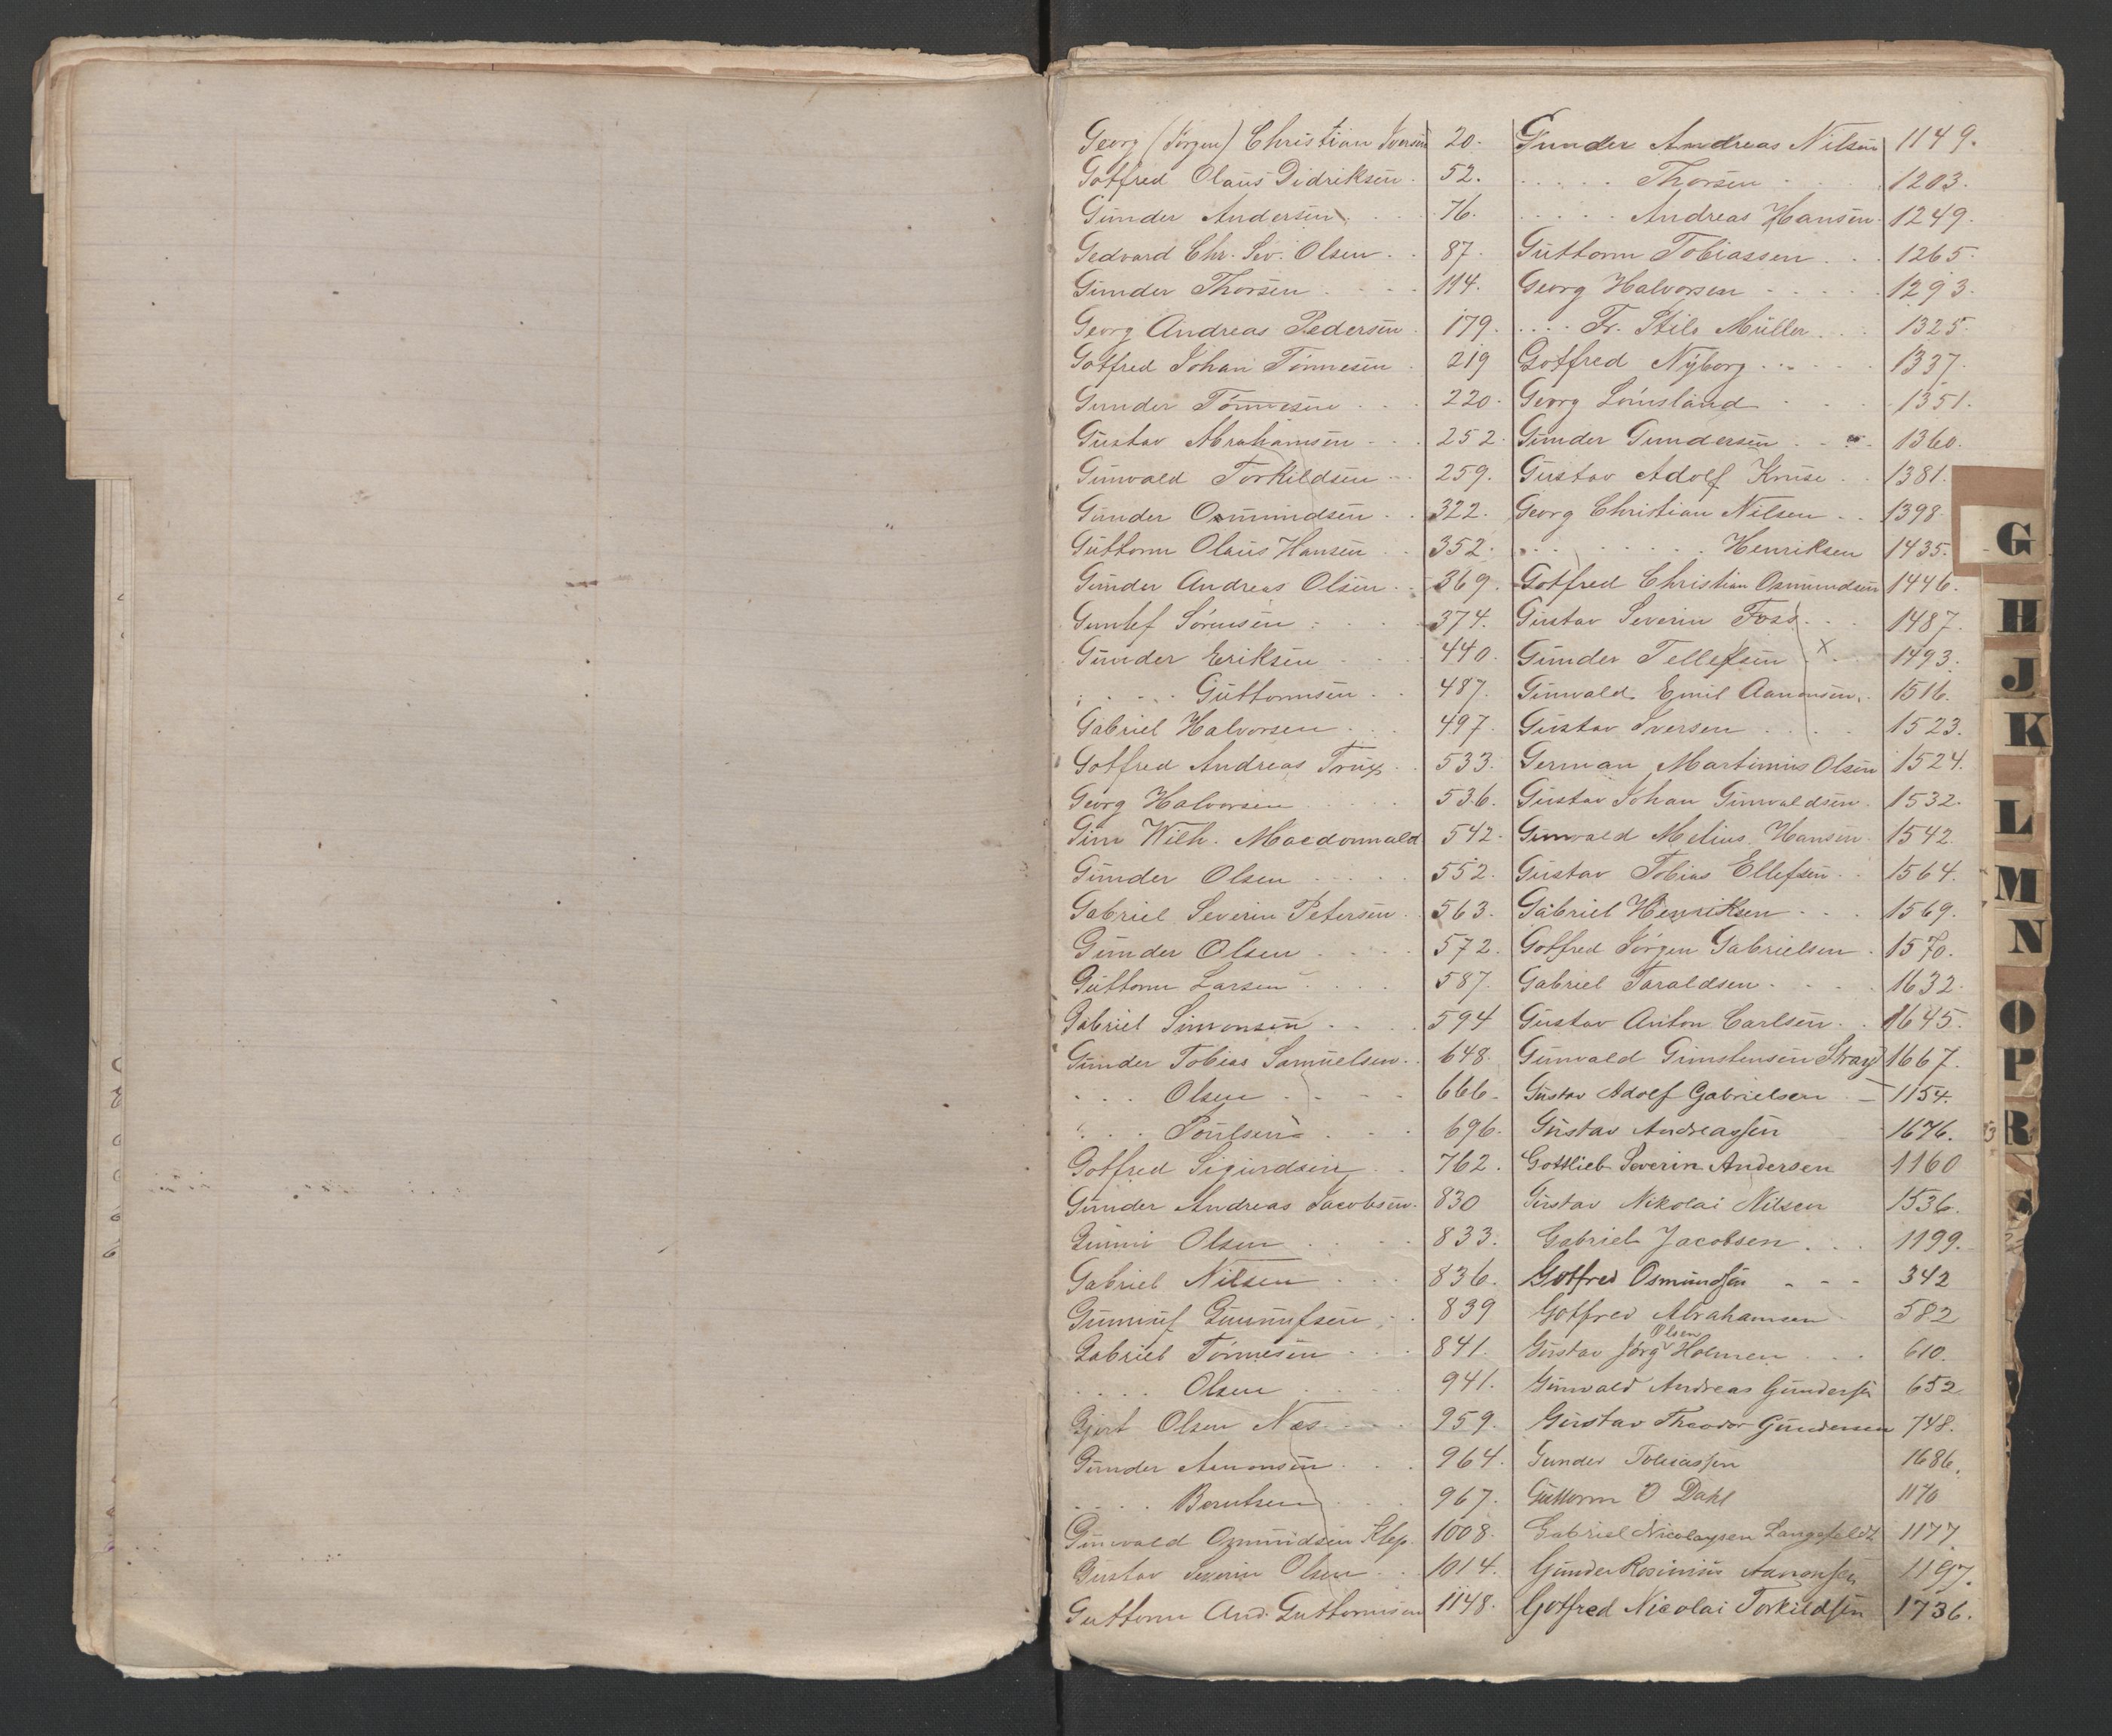 Georg (Jörgen) Christian Iversen 20.
Gotfred Olaus Didriksen . 52.
Gunder Andersen . . . 76.
Gedvard Chr. Sev. Olsen . . 87.
Gunder Thorsen . . . . 114.
Georg Andreas Pedersen . 179.
Gotfred Johan Tönnesen . 219
Gunder Tönnesen . . . 220.
Gustav Abrahamsen . . . 252.
Gunvald Torkildsen . . . 259.
Gunder Osmundsen . . 322.
Guttorm Olaus Hansen . . 352.
Gunder Andreas Olsen . . 369.
Gunlef Sörensen . . . . 374.
Gunder Eriksen . . . 440.
. . . . Guttormsen . . 487.
Gabriel Halvorsen . . . 497.
Gotfred Andreas . . 533.
Georg Halvorsen . . . 536.
Wilh. Macdonnald 542.
Gunder Olsen . . . . . 552.
Gabriel Severin Petersen . 563.
Gunder Olsen . . . . 572.
Guttorm Larsen . . . . 587.
Gabriel Simonsen . . . . 594
Gunder Tobias Samuelsen . . 648.
. . . Olsen . . . . 666.
. . . Poulsen . . . 696.
Gotfred Sigurdsen . . 762.
Gunder Andreas Jacobsen . 830
Olsen . . . . 833.
Gabriel Nilsen . . . 836.
Gunnuf Gunnufsen . . 839
Gabriel Tönnesen . . . 841.
. . . . Olsen . . . . 941.
Gjert Olsen Næs . . . 959.
Gunder Aanonsen . . . 964.
. . . . Berntsen . . . 967.
Gunvald Osmundsen Klep. 1008.
Gustav Severin Olsen . . 1014.
Guttorm And. Guttormsen 1148.
Gunder Andreas Nilsen 1149.
. . . . . Thorsen . . . . 1203.
. . . . . Andreas Hansen . 1249.
Guttorm Tobiassen . . . 1265.
Georg Halvorsen . . . . . 1293.
. . . . Fr. Stils Müller . . . 1325.
Gotfred Nyborg . . . . . 1337.
Georg Lömsland . . . 1351.
Gunder Gundersen . . . . 1360.
Gustav Adolf Kruse . . 1381.
Georg Christian Nilsen . . 1398
. . . . . . . . Henriksen 1435.
Gotfred Christian Osmundsen 1446.
Gustav Severin Foss . . . 1487.
Gunder Tellefsen . x . . 1493.
Gunvald Emil Aanonsen . 1516.
Gustav Iversen . . . . . 1523.
German Martinius Olsen 1524.
Gustav Johan Gunvaldsen . 1532.
Gunvald Melius Hansen . 1542.
Gustav Tobias Ellefsen . . 1564.
Gabriel Henriksen . . . 1569.
Gotfred Jörgen Gabrielsen . 1570.
Gabriel Taraldsen . . . . 1632.
Gustav Anton Carlsen . . 1645.
Gunvald Gunstensen Stray 1667.
Gustav Adolf Gabrielsen — 1154.
Gustav Andreassen 1676.
Gottlieb Severin Andersen 1160
Gustav Nikolai Nilsen 1536.
Gabriel Jacobsen . . . 1199.
Gotfred Osmundsen - - - 342
Gotfred Abrahamsen 582
Olsen
Gustav Jörg Holmen . . . 610.
Gunvald Andreas Gundersen 652
Gustav Theodor Gundersen 748.
Gunder Tobiassen 1686.
Guttorm O Dahl 1170
Gabriel Nicolaysen Langefeldt 1177.
Gunder Rosinius Aanonsen 1197.
Gotfred Nicolai Torkildsen 1736.
G
H
J
K
L
M
N
O
P
R
S